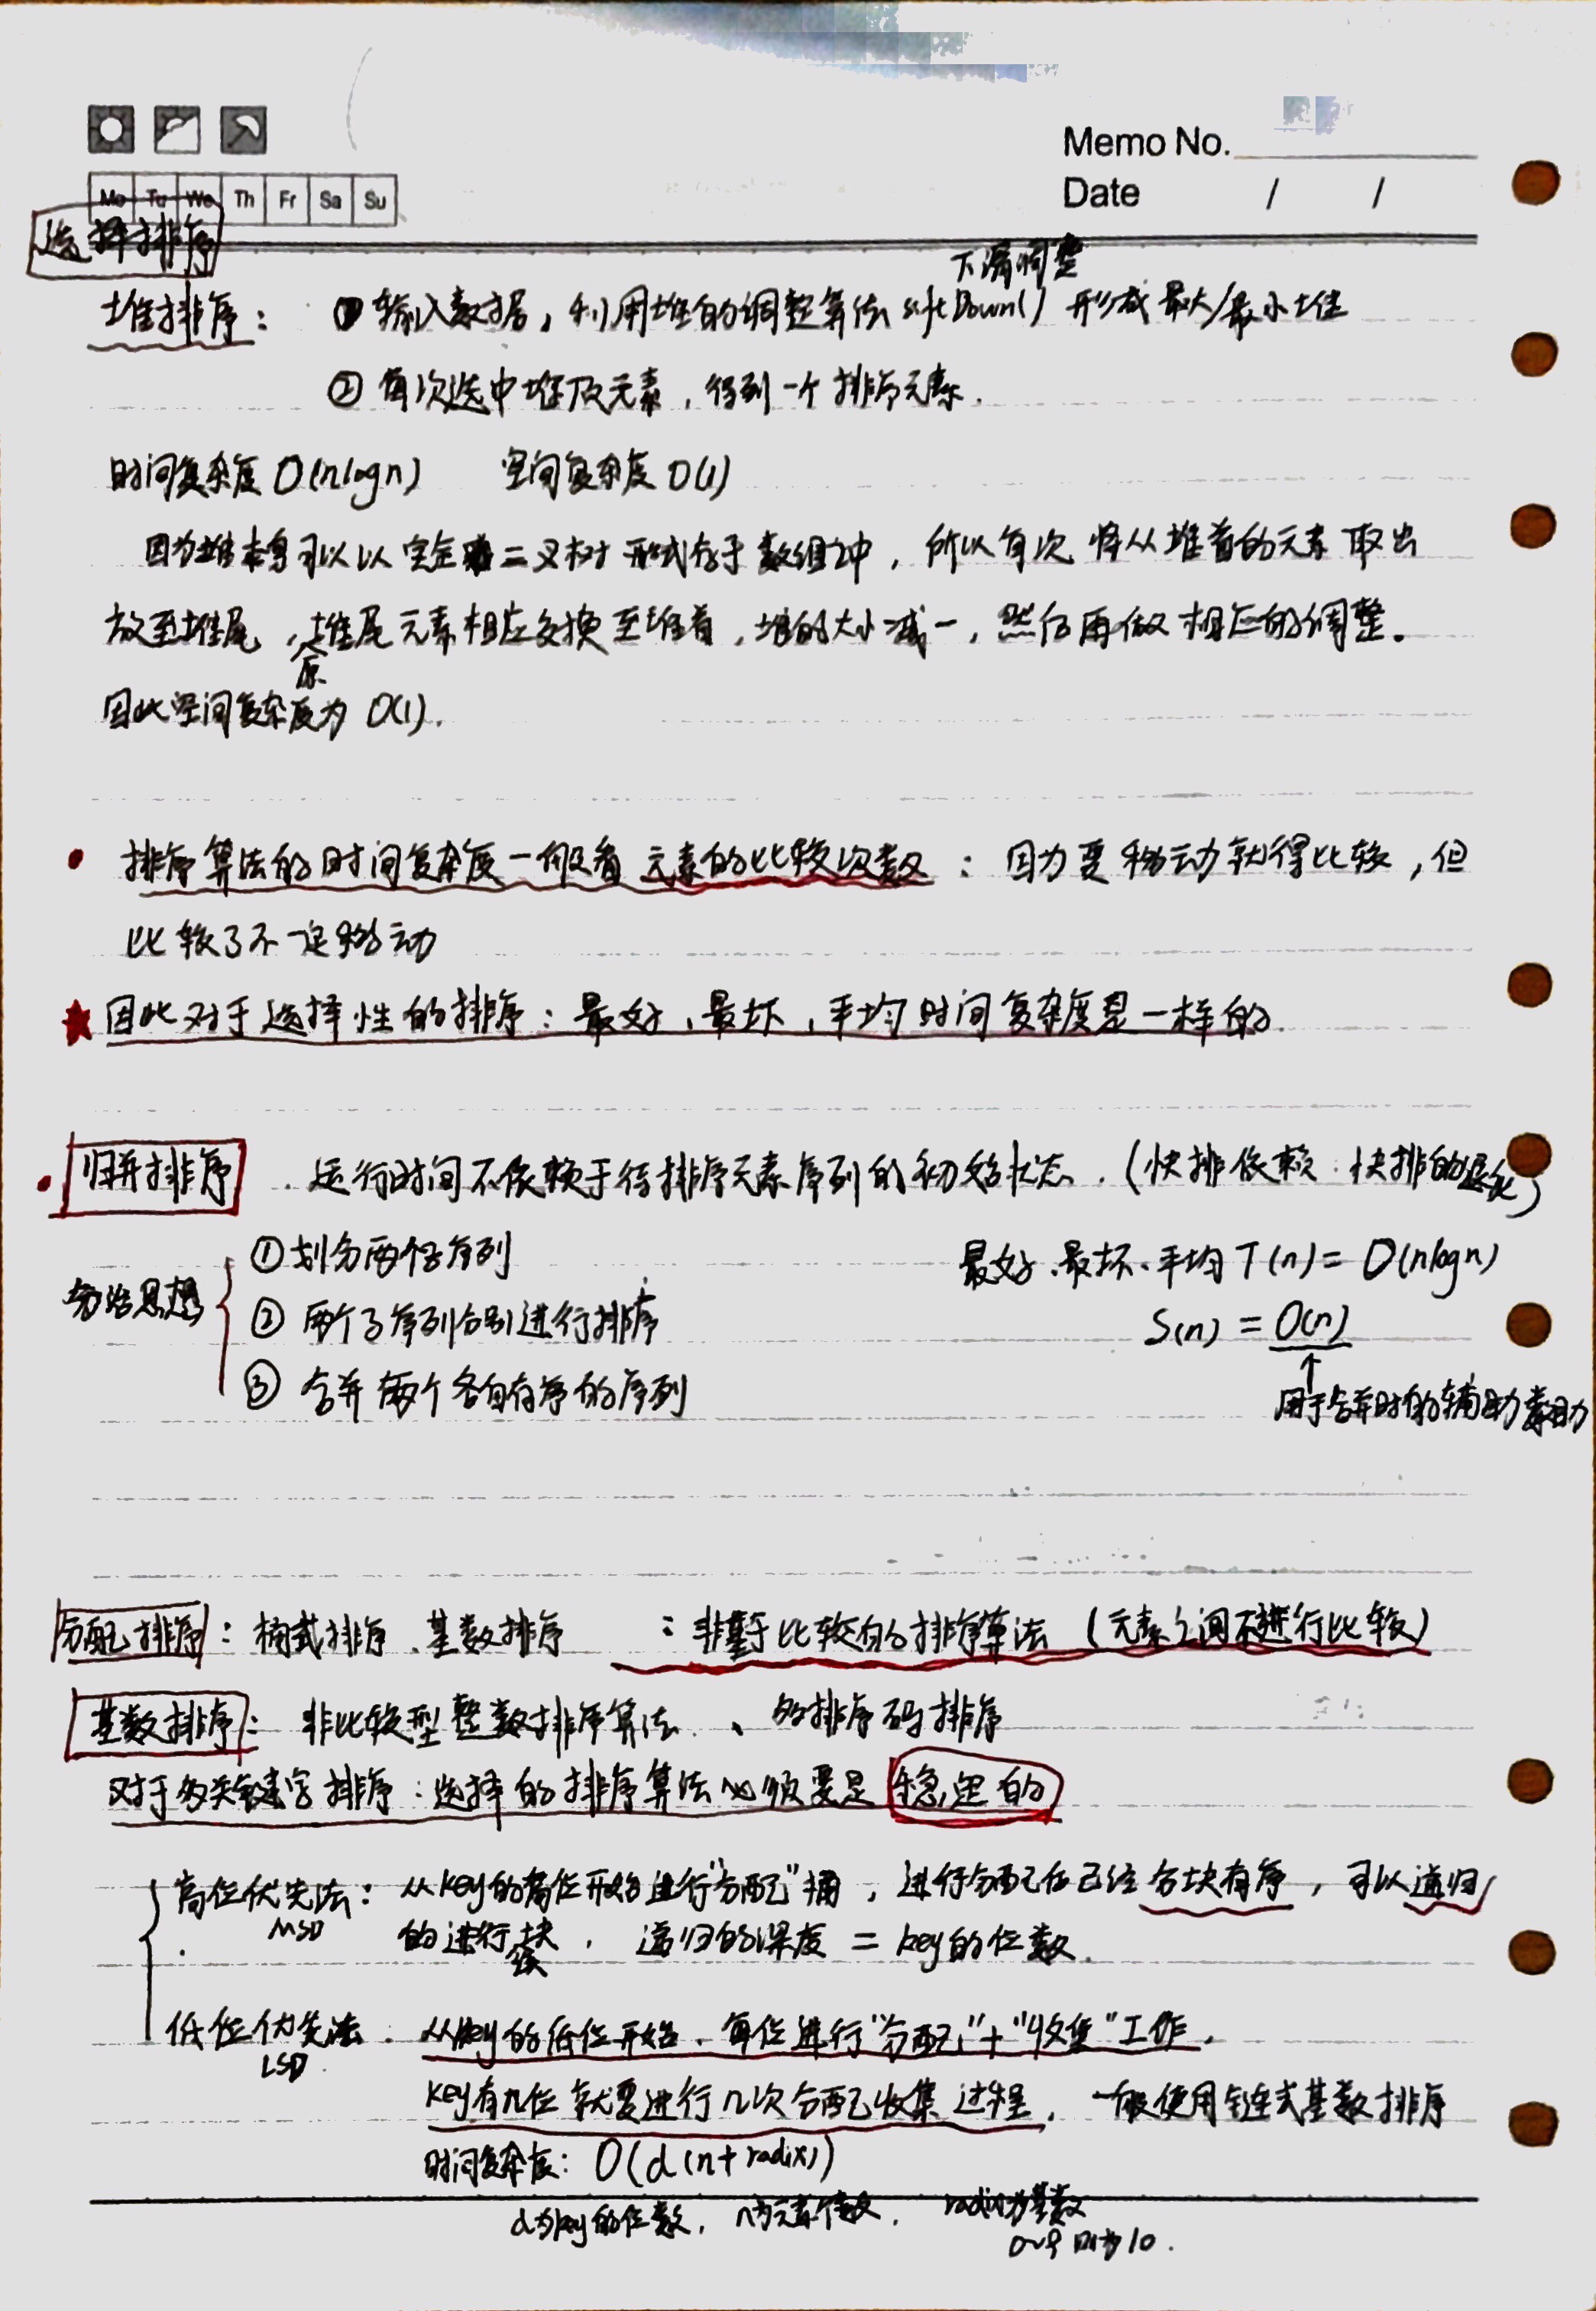 Memo No.
Date / /
Mo Tu We Th Fr Sa Su
选择排序
下滤调整
堆排序： ① 输入数据，利用堆的调整算法 siftDown() 形成最大/最小堆
② 每次选中堆顶元素，得到一个排序元素.
时间复杂度 O(nlogn) 空间复杂度 O(1)
因为堆本身可以以完全二叉树形式存于数组之中，所以每次将从堆首的元素取出
放至堆尾，原堆尾元素相应交换至堆首，堆的大小减一，然后再做相应的调整。
因此空间复杂度为 O(1).
排序算法的时间复杂度一般看元素的比较次数：因为要移动就得比较，但
比较了不一定移动
★因此对于选择性的排序：最好、最坏、平均时间复杂度是一样的.
归并排序 . 运行时间不依赖于待排序元素序列的初始状态.（快排依赖. 快排的退化）
分治思想
① 划分两个子序列
② 两个子序列分别进行排序
③ 合并两个各自有序的序列
最好、最坏、平均 T(n) = O(nlogn)
S(n) = O(n)
↑
用于合并时的辅助数组
分配排序：桶式排序、基数排序 ：非基于比较的排序算法（元素之间不进行比较）
基数排序：非比较型整数排序算法、多排序码排序
对于多关键字排序：选择的排序算法必须要是稳定的
高位优先法：从key的高位开始进行“分配”桶，进行分配后已经各块有序，可以递归
MSD
的进行块，递归的深度 = key的位数.
低位优先法. 从key的低位开始. 每位进行“分配”+“收集”工作，
LSD
key有几位就要进行几次分配收集过程，一般使用链式基数排序
时间复杂度：O(d(n+radix))
d为key的位数，n为元素个数，radix为基数
0~9 则为10.